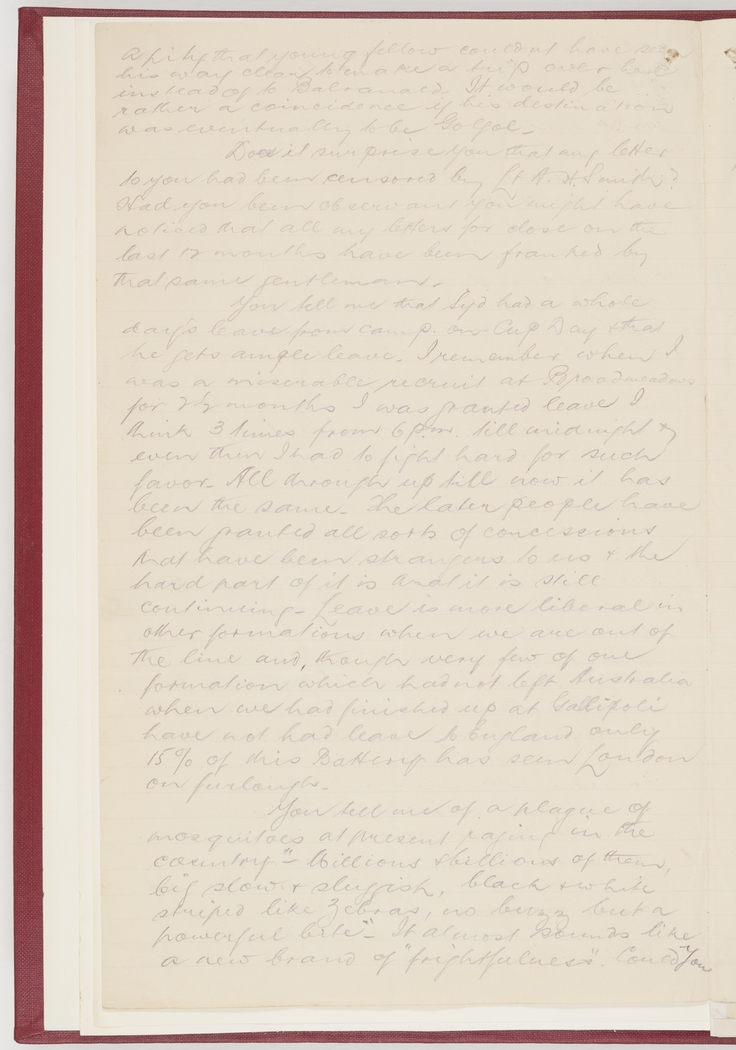 a pity that young fellow couldn't have seen
his way clear to make a trip over here
instead of to Balranald. It would be
rather a coincidence if his destination
was eventually to be Golgol.
Does it surprise you that my letter
to you had been censored by Lt A. H. Smith?
Had you been observant you might have
noticed that all my letters for close on the
last 12 months have been franked by
that same gentleman.
You tell me that Syd had a whole
day's leave from camp on Cup Day & that
he gets ample leave. I remember when I
was a miserable recruit at Broadmeadows
for 2½ months I was granted leave I
think 3 times from 6 p.m. till midnight &
even then I had to fight hard for such
favor. All through up till now it has
been the same. The later people have
been granted all sorts of concessions
that have been strangers to us & the
hard part of it is that it is still
continuing. Leave is more liberal in
other formations when we are out of
the line and, though very few of our
formation which had not left Australia
when we had finished up at Gallipoli
have not had leave to England only
15% of this Battery has seen London
on furlough.
You tell me of a plague of
mosquitoes at present raging in the
country "– Millions & billions of them,
big slow & slugish, black & white
striped like Zebras, no buzz but a
powerful bite". It almost sounds like
a new brand of "frightfulness". Could you